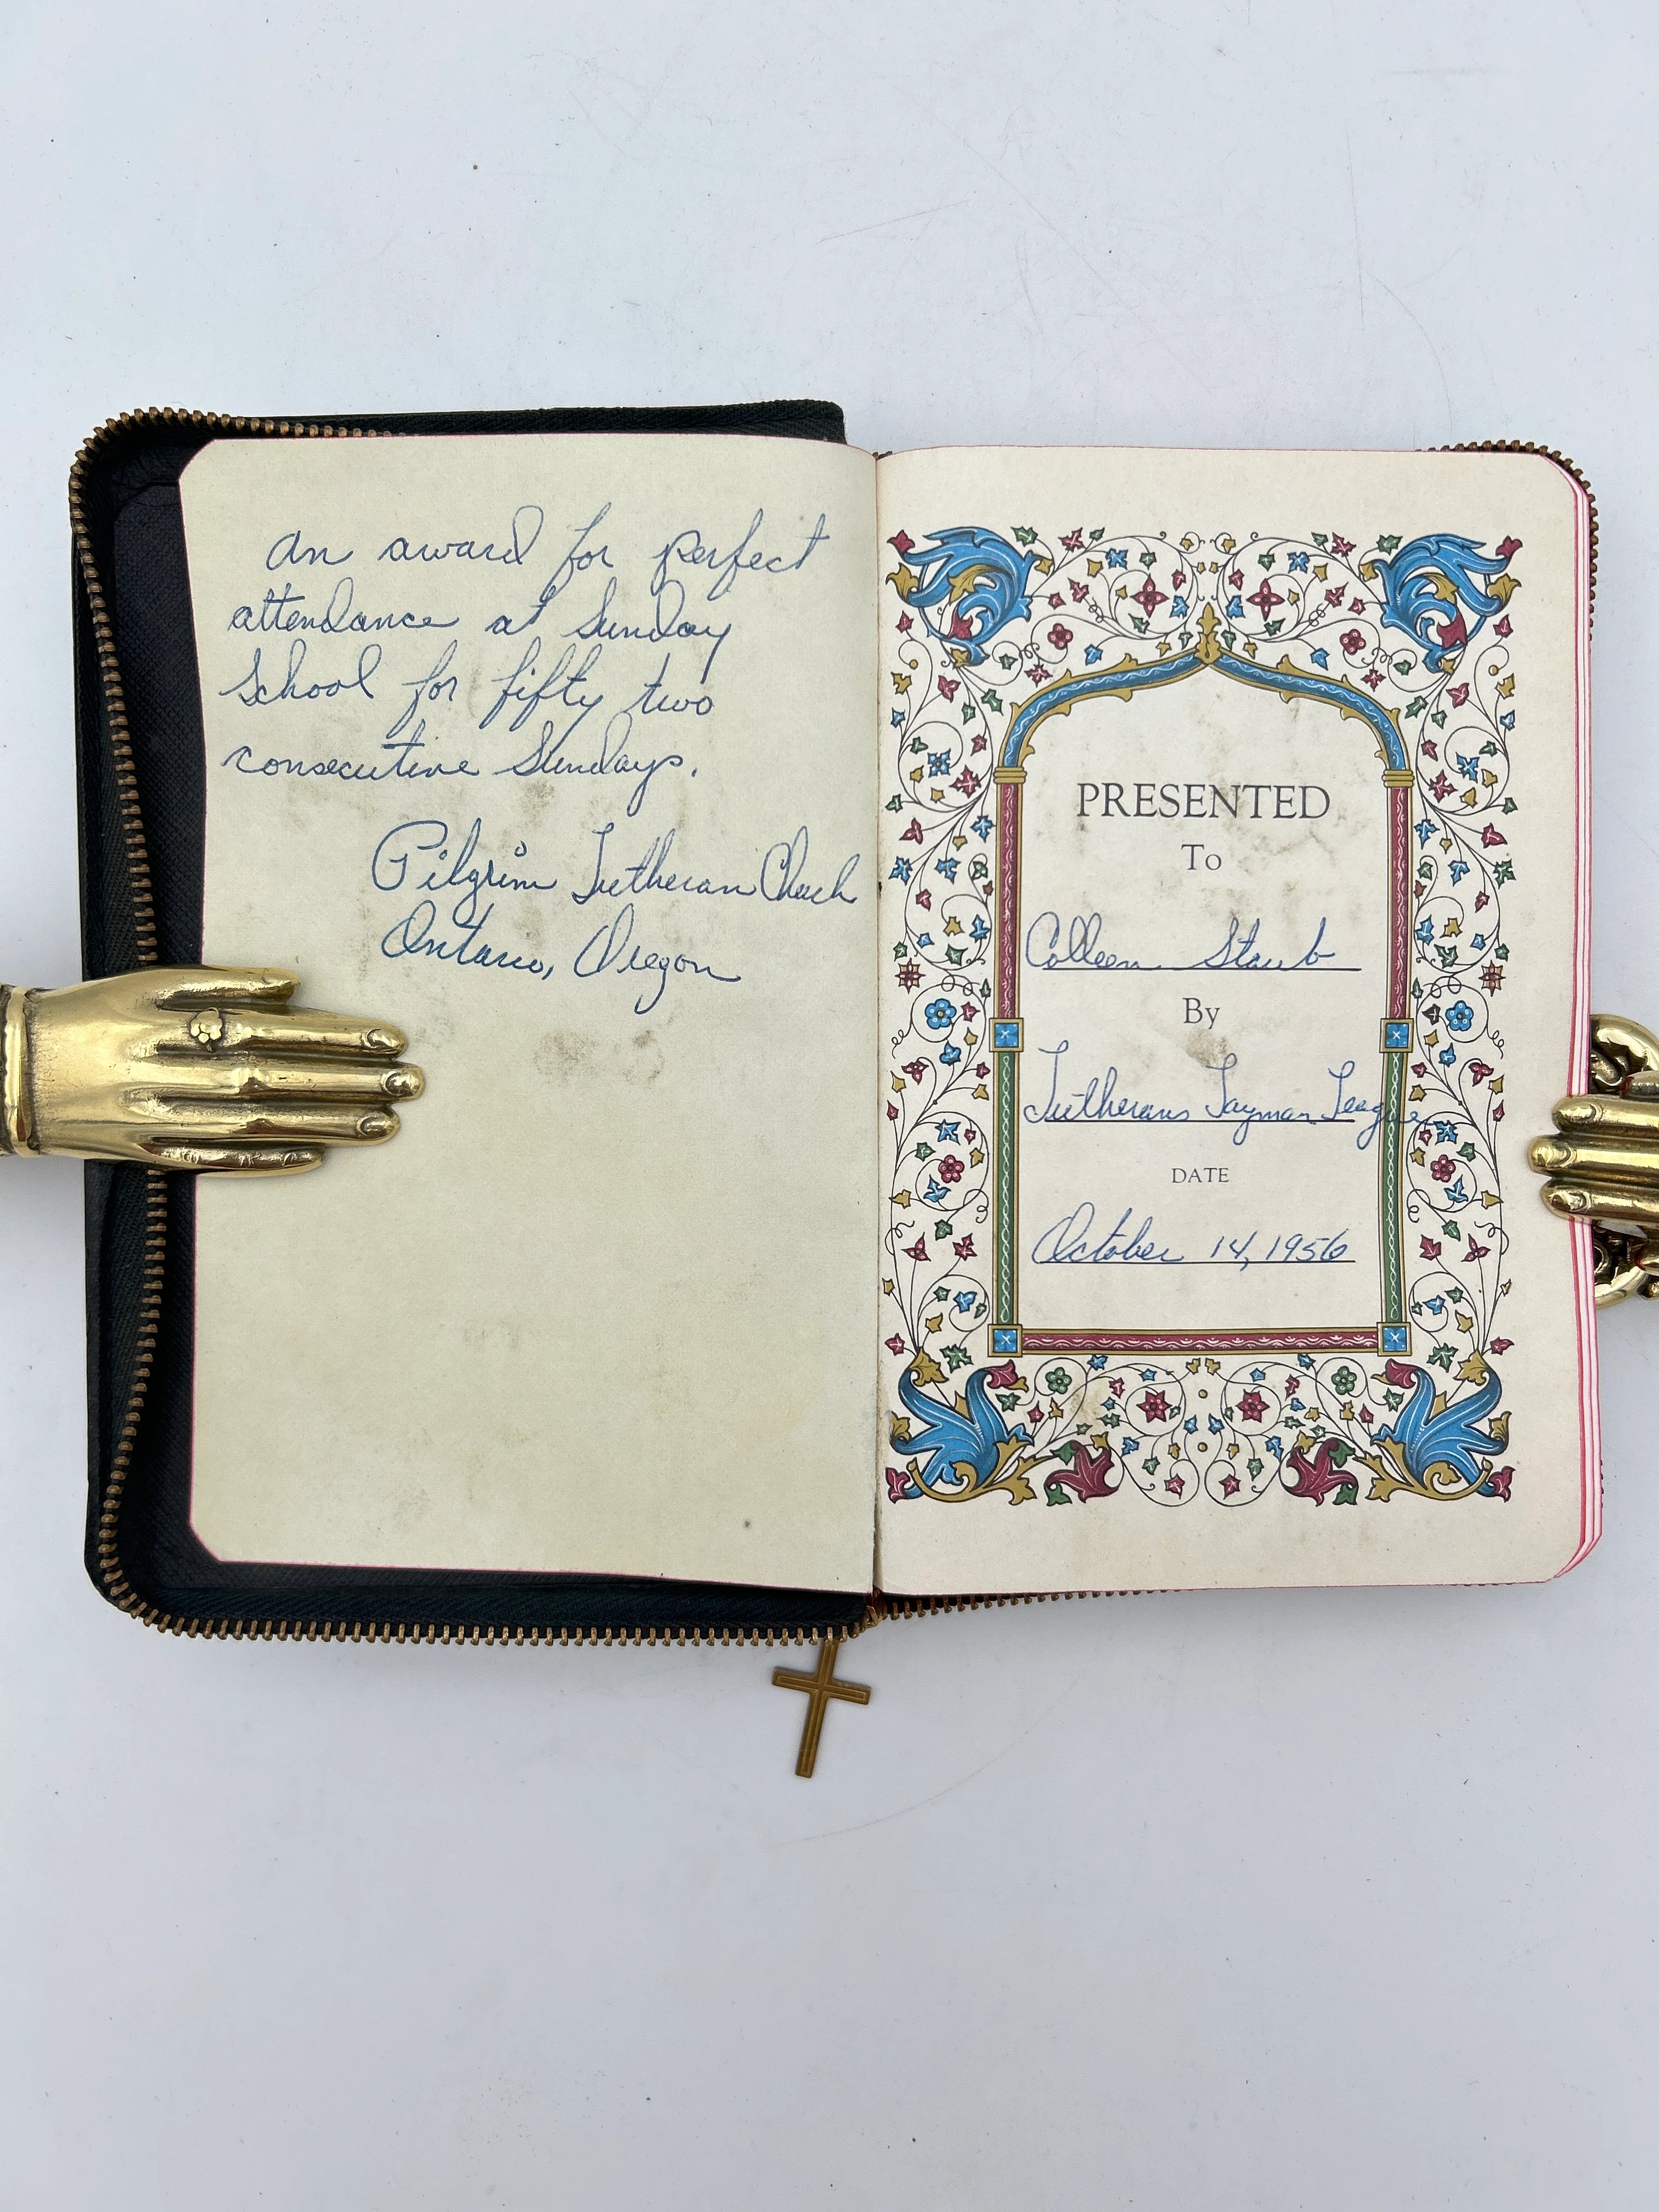 An award for perfect
attendance at Sunday
School for fifty two
consecutive Sundays.
Pilgrim Lutheran Church
Ontario, Oregon
PRESENTED
To
Colleen Staub
By
Lutherans Layman League
DATE
October 14, 1956